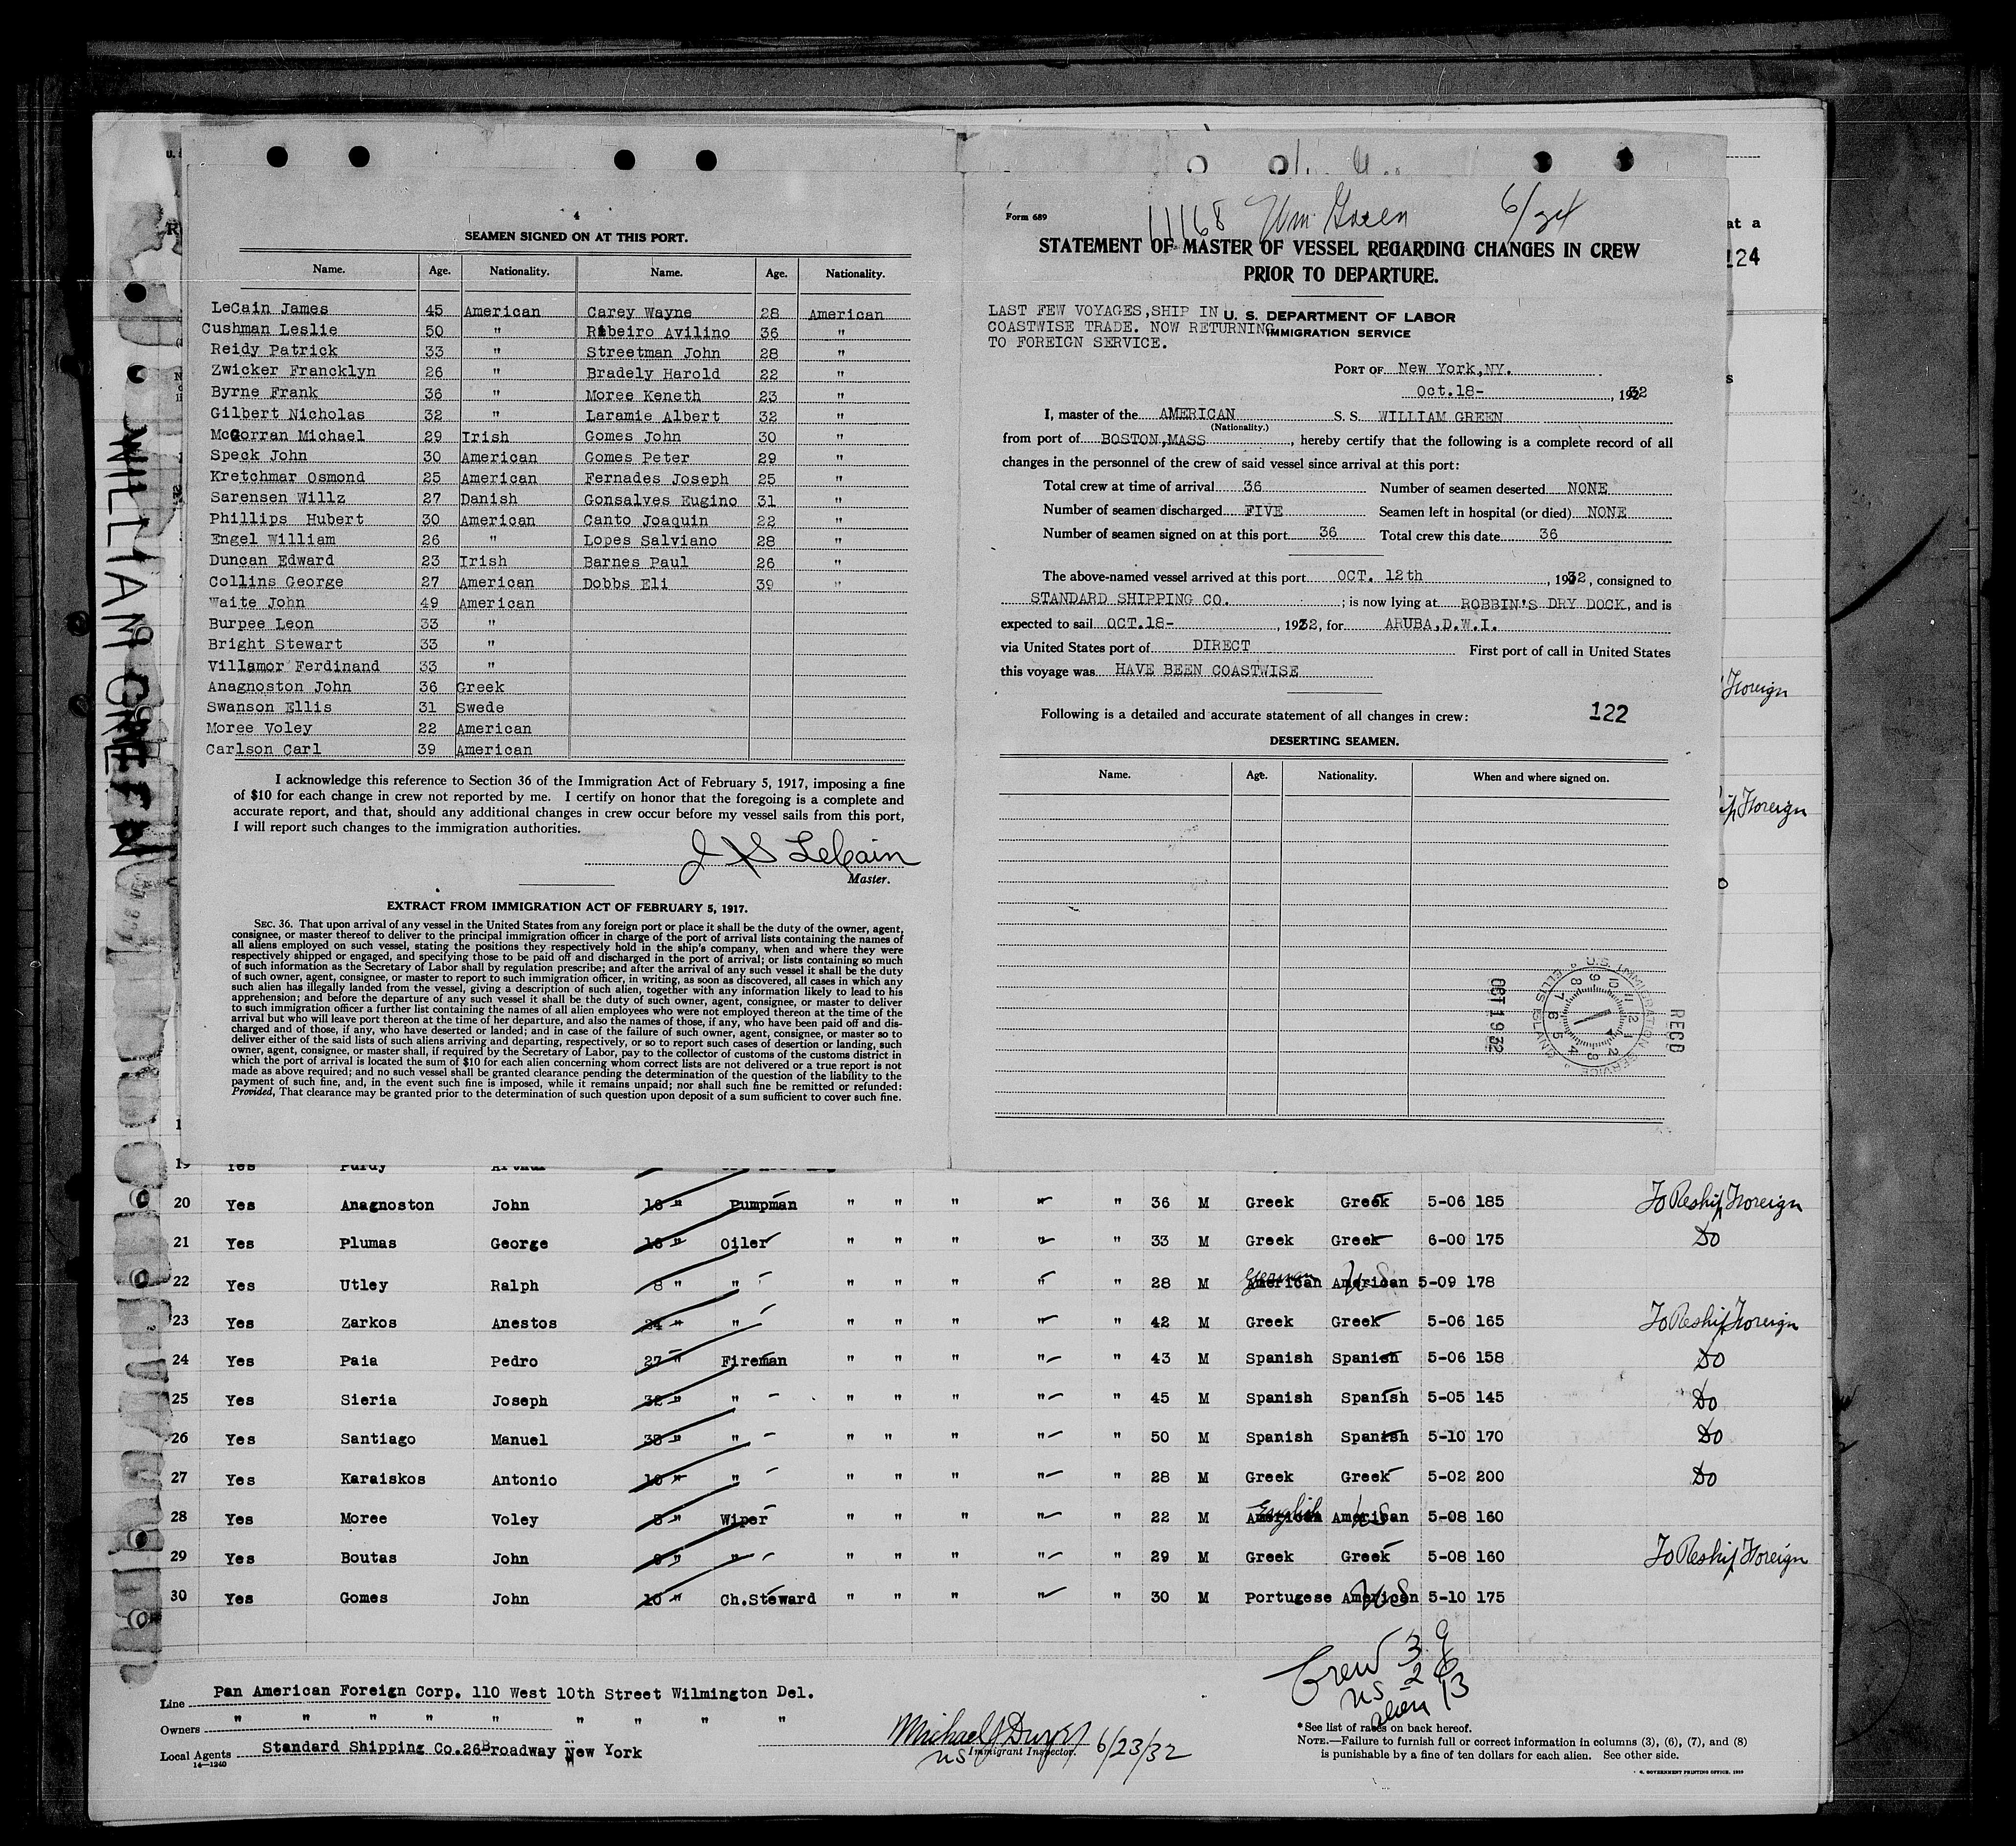 4
SEAMEN SIGNED ON AT THIS PORT.
Name. Age. Nationality. Name. Age. Nationality.
LeCain James 45 American Carey Wayne 28 American
Cushman Leslie 50 " Ribeiro Avilino 36 "
Reidy Patrick 33 " Streetman John 28 "
Zwicker Francklyn 26 " Bradely Harold 22 "
Byrne Frank 36 " Moree Keneth 23 "
Gilbert Nicholas 32 " Laramie Albert 32 "
McGorran Michael 29 Irish Gomes John 30 "
Speck John 30 American Gomes Peter 29 "
Kretchmar Osmond 25 American Fernades Joseph 25 "
Sarensen Willz 27 Danish Gonsalves Eugino 31 "
Phillips Hubert 30 American Canto Joaquin 22 "
Engel William 26 " Lopes Salviano 28 "
Duncan Edward 23 Irish Barnes Paul 26 "
Collins George 27 American Dobbs Eli 39 "
Waite John 49 American
Burpee Leon 33 "
Bright Stewart 33 "
Villamor Ferdinand 33 "
Anagnoston John 36 Greek
Swanson Ellis 31 Swede
Moree Voley 22 American
Carlson Carl 39 American
I acknowledge this reference to Section 36 of the Immigration Act of February 5, 1917, imposing a fine
of $10 for each change in crew not reported by me. I certify on honor that the foregoing is a complete and
accurate report, and that, should any additional changes in crew occur before my vessel sails from this port,
I will report such changes to the immigration authorities.
LeCain
Master.
EXTRACT FROM IMMIGRATION ACT OF FEBRUARY 5, 1917.
SEC. 36. That upon arrival of any vessel in the United States from any foreign port or place it shall be the duty of the owner, agent,
consignee, or master thereof to deliver to the principal immigration officer in charge of the port of arrival lists containing the names of
all aliens employed on such vessel, stating the positions they respectively hold in the ship's company, when and where they were
respectively shipped or engaged, and specifying those to be paid off and discharged in the port of arrival; or lists containing so much
of such information as the Secretary of Labor shall by regulation prescribe; and after the arrival of any such vessel it shall be the duty
of such owner, agent, consignee, or master to report to such immigration officer, in writing, as soon as discovered, all cases in which any
such alien has illegally landed from the vessel, giving a description of such alien, together with any information likely to lead to his
apprehension; and before the departure of any such vessel it shall be the duty of such owner, agent, consignee, or master to deliver
to such immigration officer a further list containing the names of all alien employees who were not employed thereon at the time of the
arrival but who will leave port thereon at the time of her departure, and also the names of those, if any, who have been paid off and dis-
charged and of those, if any, who have deserted or landed; and in case of the failure of such owner, agent, consignee, or master so to
deliver either of the said lists of such aliens arriving and departing, respectively, or so to report such cases of desertion or landing, such
owner, agent, consignee, or master shall, if required by the Secretary of Labor, pay to the collector of customs of the customs district in
which the port of arrival is located the sum of $10 for each alien concerning whom correct lists are not delivered or a true report is not
made as above required; and no such vessel shall be granted clearance pending the determination of the question of the liability to the
payment of such fine, and, in the event such fine is imposed, while it remains unpaid; nor shall such fine be remitted or refunded:
Provided, That clearance may be granted prior to the determination of such question upon deposit of a sum sufficient to cover such fine.
WILLIAM GREEN
Form 689
11168 Wm Green 6/24
STATEMENT OF MASTER OF VESSEL REGARDING CHANGES IN CREW
PRIOR TO DEPARTURE.
LAST FEW VOYAGES,SHIP IN
COASTWISE TRADE. NOW RETURNING
TO FOREIGN SERVICE.
U. S. DEPARTMENT OF LABOR
IMMIGRATION SERVICE
PORT OF New York,NY.
Oct.18- , 1932
I, master of the AMERICAN S. S. WILLIAM GREEN
(Nationality.)
from port of BOSTON,MASS , hereby certify that the following is a complete record of all
changes in the personnel of the crew of said vessel since arrival at this port:
Total crew at time of arrival 36 Number of seamen deserted NONE
Number of seamen discharged FIVE Seamen left in hospital (or died) NONE
Number of seamen signed on at this port 36 Total crew this date 36
The above-named vessel arrived at this port OCT. 12th , 1932, consigned to
STANDARD SHIPPING CO. ; is now lying at ROBBIN'S DRY DOCK, and is
expected to sail OCT.18- , 1932, for ARUBA,D.W.I.
via United States port of DIRECT First port of call in United States
this voyage was HAVE BEEN COASTWISE
Following is a detailed and accurate statement of all changes in crew: 122
DESERTING SEAMEN.
Name. Age. Nationality. When and where signed on.
RECD
U.S. IMMIGRATION SERVICE ELLIS ISLAND
12 1 2 3 4 5 6 7 8 9 10 11
at a
124
Foreign
Foreign
19 Yes Purdy Arthur
20 Yes Anagnoston John 16 " Pumpman " " " " " 36 M Greek Greek 5-06 185 To Reship Foreign
21 Yes Plumas George 16 " Oiler " " " " " 33 M Greek Greek 6-00 175 Do
22 Yes Utley Ralph 8 " " " " " " " 28 M American German American US 5-09 178
23 Yes Zarkos Anestos 24 " " " " " " " 42 M Greek Greek 5-06 165 To Reship Foreign
24 Yes Paia Pedro 27 " Fireman " " " " " 43 M Spanish Spanish 5-06 158 Do
25 Yes Sieria Joseph 32 " " " " " " " 45 M Spanish Spanish 5-05 145 Do
26 Yes Santiago Manuel 38 " " " " " " " 50 M Spanish Spanish 5-10 170 Do
27 Yes Karaiskos Antonio 10 " " " " " " " 28 M Greek Greek 5-02 200 Do
28 Yes Moree Voley 5 " Wiper " " " " " 22 M American English American US 5-08 160
29 Yes Boutas John " " " " " " " 29 M Greek Greek 5-08 160 To Reship Foreign
30 Yes Gomes John 10 " Ch.Steward " " " " " 30 M Portugese American US 5-10 175
Crew 39
US 26
alien 13
Line Pan American Foreign Corp. 110 West 10th Street Wilmington Del.
Owners " " " " " " " " "
Local Agents Standard Shipping Co.26Broadway New York
14—1240
Michael J Dwyer 6/23/32
US Immigrant Inspector.
*See list of races on back hereof.
NOTE.—Failure to furnish full or correct information in columns (3), (6), (7), and (8)
is punishable by a fine of ten dollars for each alien. See other side.
GOVERNMENT PRINTING OFFICE